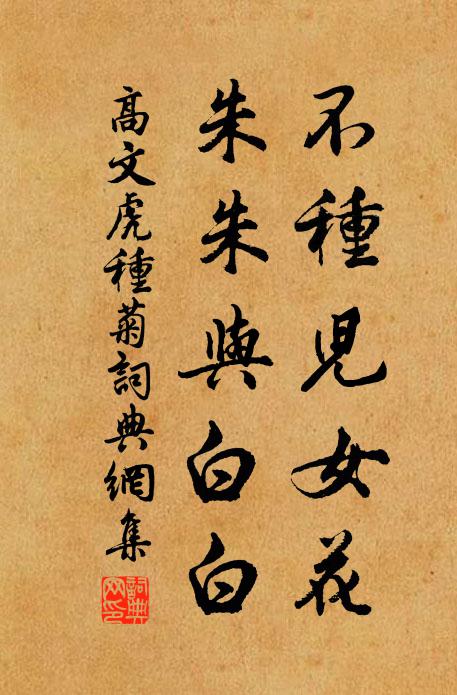 不種兒女花
朱朱與白白
高文虎種菊詞典網集
詞典網印